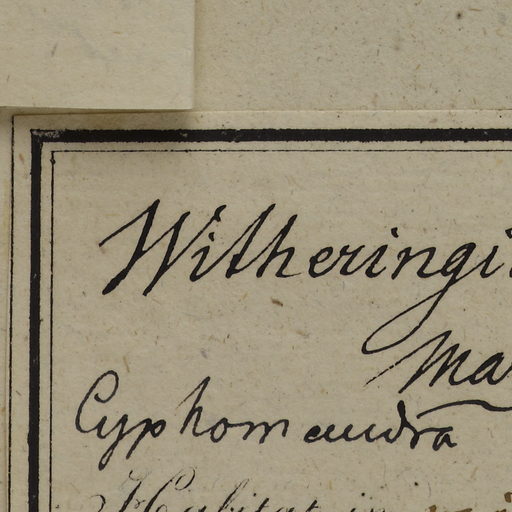 Witheringi
Ma
Cyphomandra
Habitat in